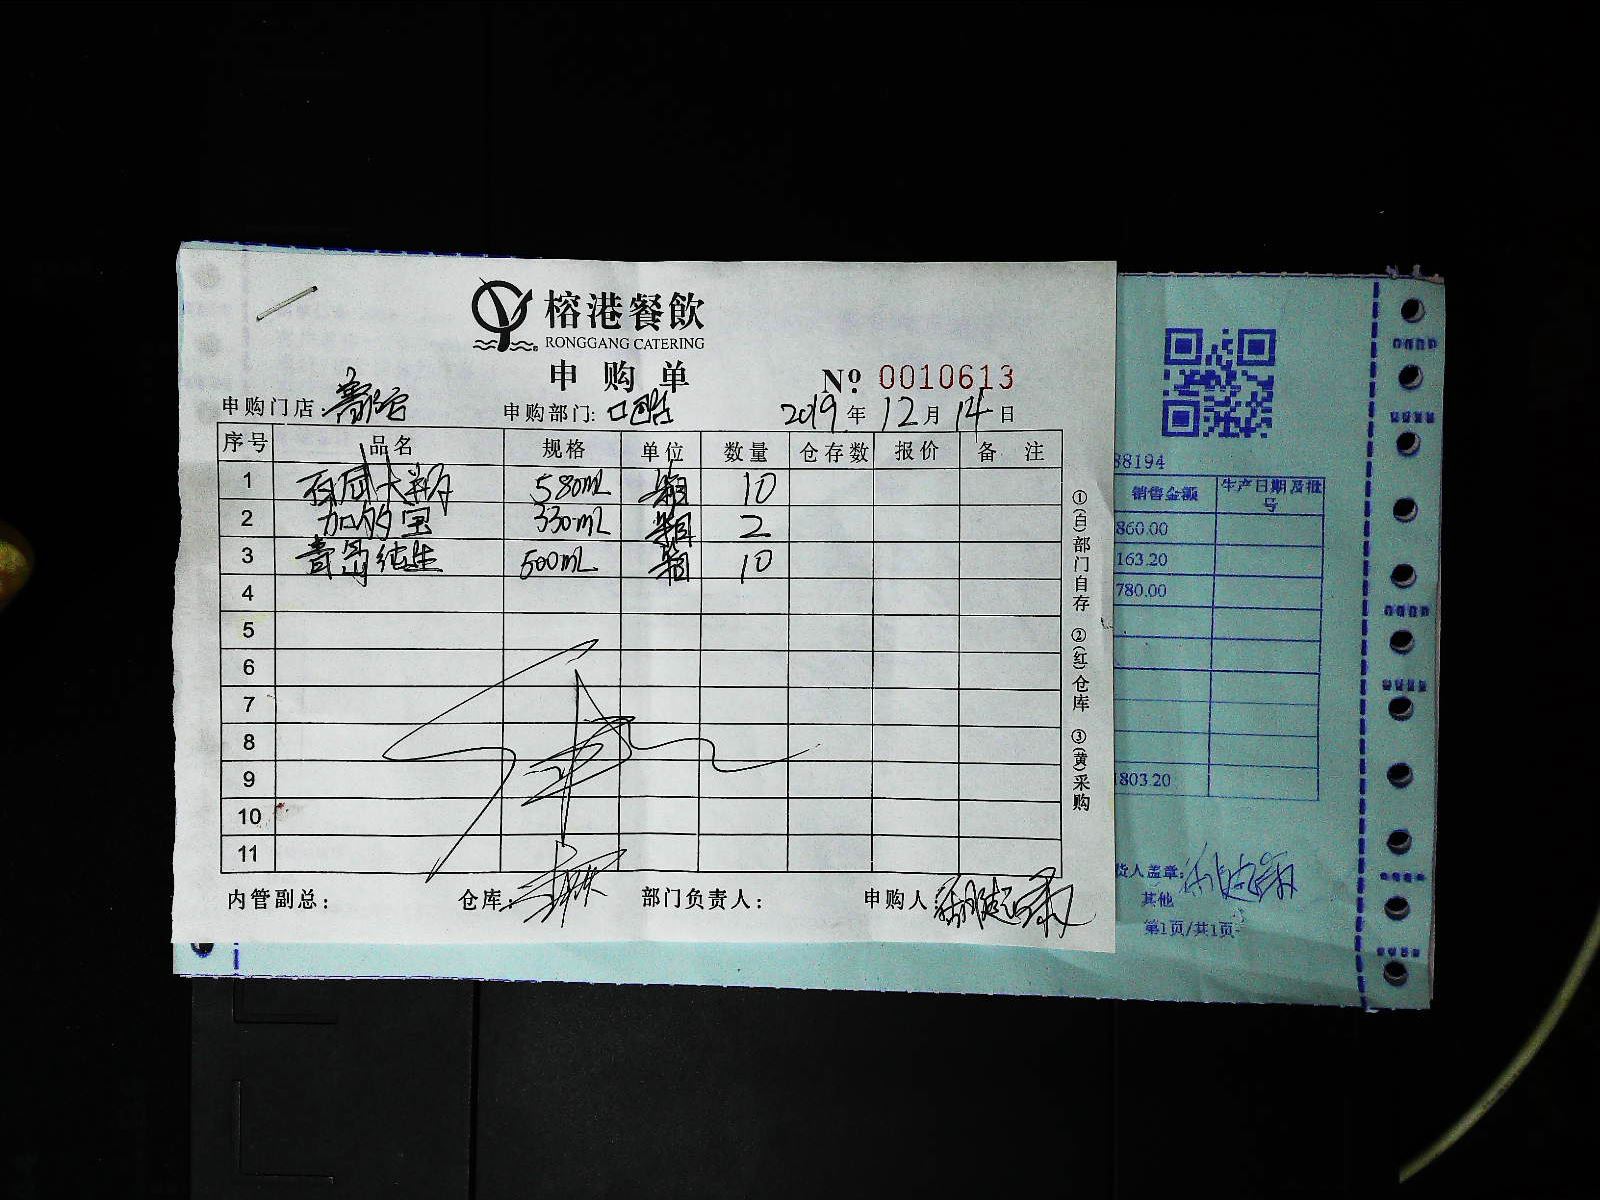 榕港餐飲
RONGGANG CATERING
申购单
№ 0010613
申购门店:
申购部门: 口岸店
2019年12月14日
序号 品名 规格 单位 数量 仓存数 报价 备注
1 580mL 箱 10
2 加多宝 330mL 箱 2
3 青岛纯生 500mL 箱 10
4
5
6
7
8
9
10
11
①(白)部门自存 ②(红)仓库 ③(黄)采购
内管副总: 仓库: 部门负责人: 申购人
88194
销售金额 生产日期及批号
860.00
163.20
780.00
1803.20
货人盖章:
其他
第1页/共1页